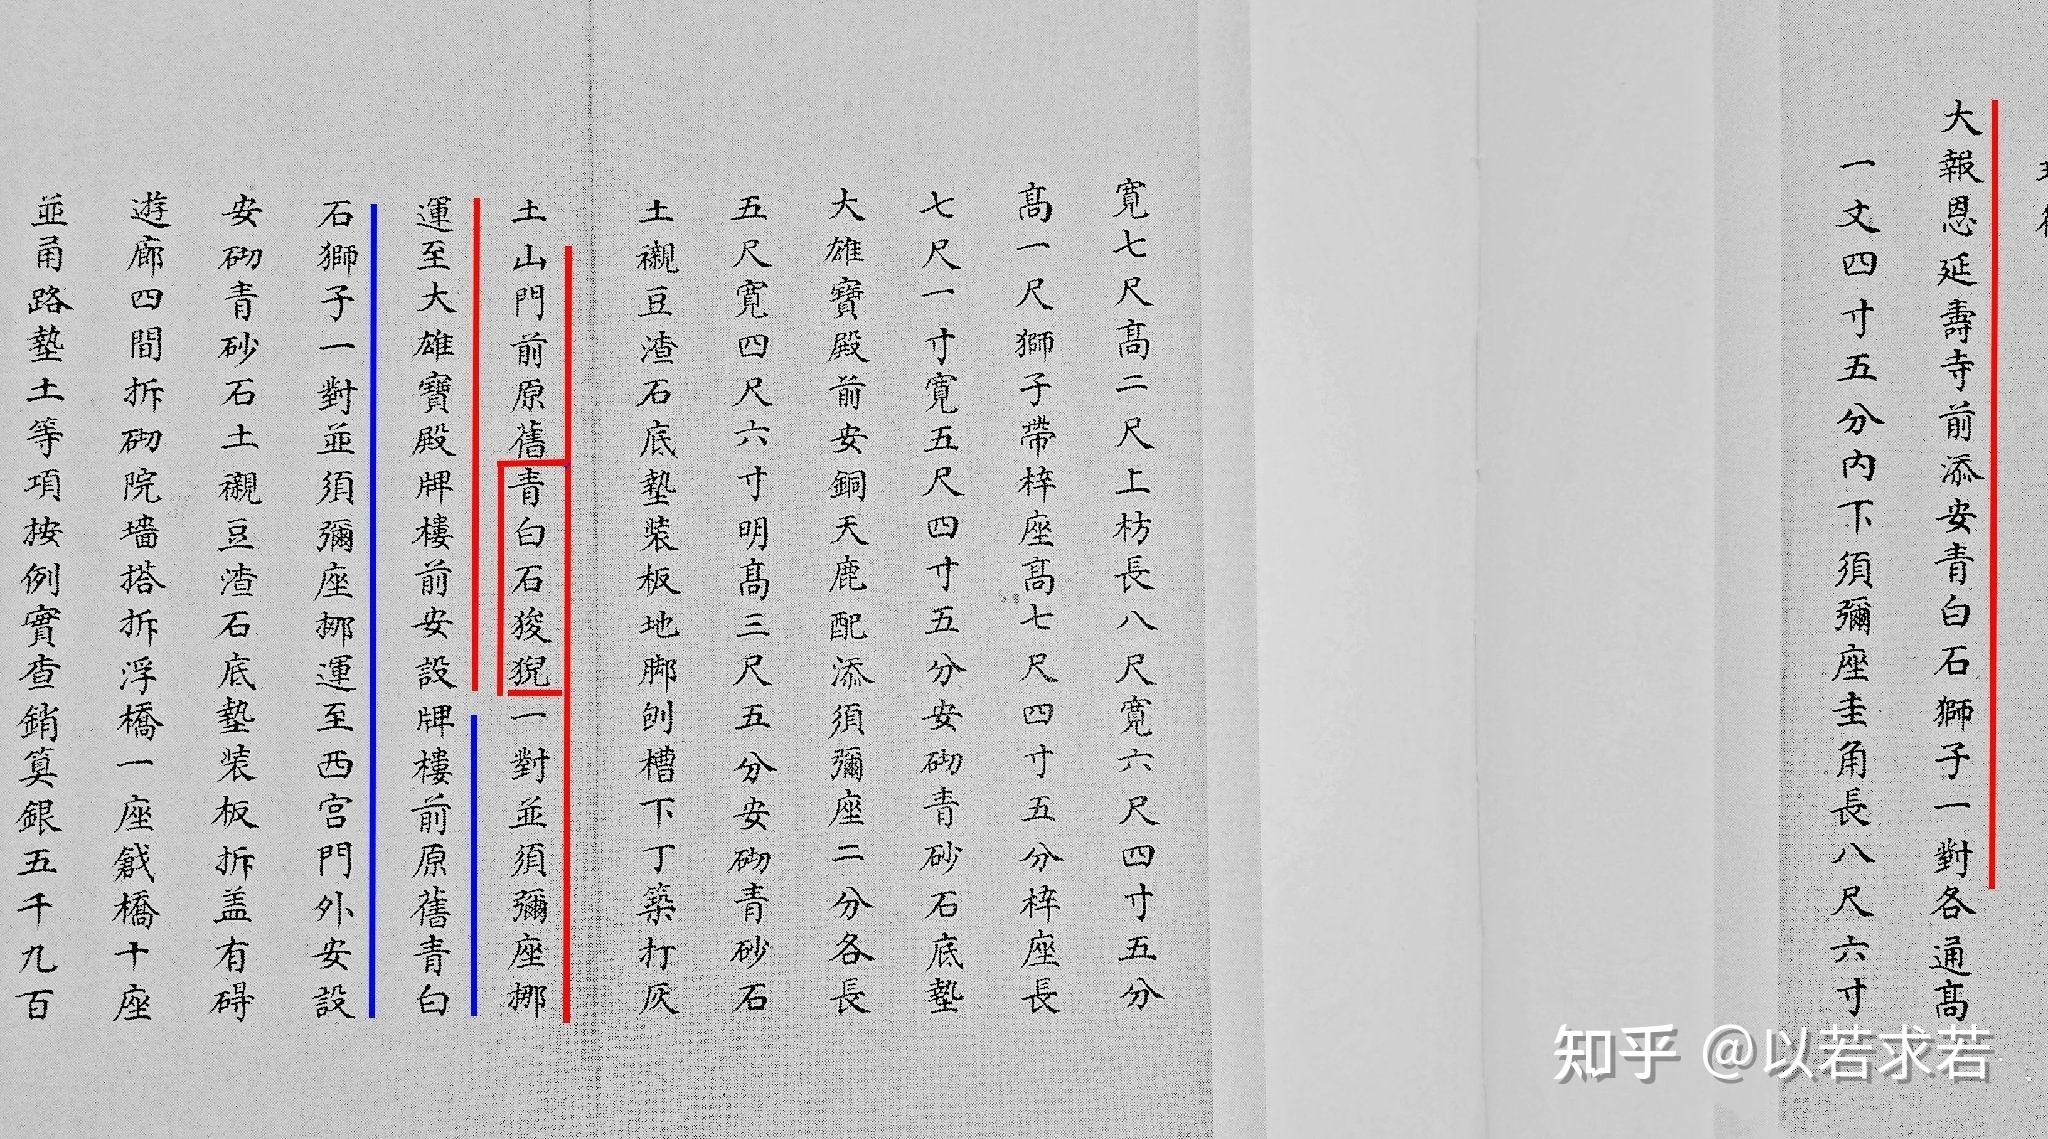 大報恩延壽寺前添安青白石獅子一對各通髙
一丈四寸五分內下須彌座圭角長八尺六寸
寬七尺髙二尺上枋長八尺寬六尺四寸五分
髙一尺獅子帶榟座髙七尺四寸五分榟座長
七尺一寸寬五尺四寸五分安砌青砂石底墊
大雄寶殿前安銅天鹿配添須彌座二分各長
五尺寬四尺六寸明髙三尺五分安砌青砂石
土襯豆渣石底墊装板地脚刨槽下丁築打灰
土山門前原舊青白石狻猊一對並須彌座挪
運至大雄寶殿牌樓前安設牌樓前原舊青白
石獅子一對並須彌座挪運至西宮門外安設
安砌青砂石土襯豆渣石底墊装板拆盖有碍
遊廊四間拆砌院墻搭拆浮橋一座戧橋十座
並甬路墊土等項按例實查銷算銀五千九百
知乎 @以若求若